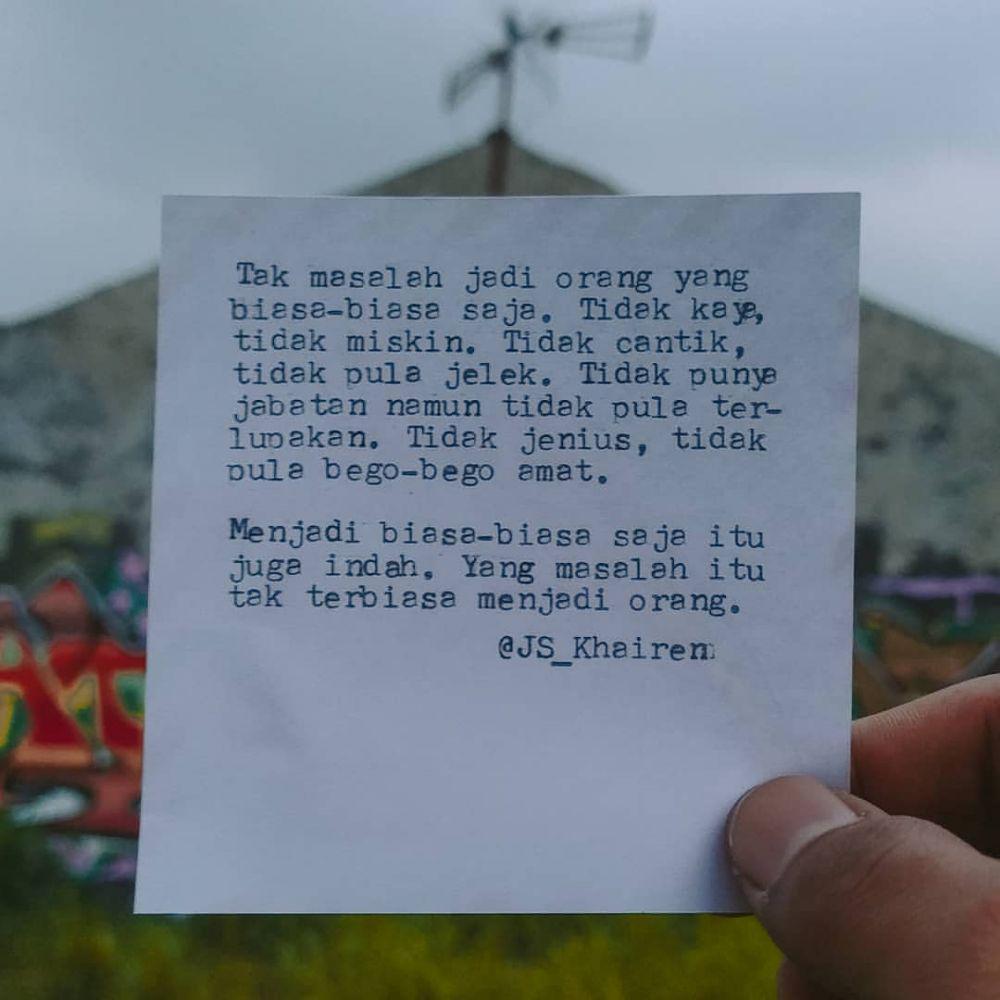 Tak masalah jadi orang yang
biasa-biasa saja. Tidak kaya,
tidak miskin. Tidak cantik,
tidak pula jelek. Tidak punya
jabatan namun tidak pula ter-
lupakan. Tidak jenius, tidak
pula bego-bego amat.
Menjadi biasa-biasa saja itu
juga indah. Yang masalah itu
tak terbiasa menjadi orang.
@JS_Khairen